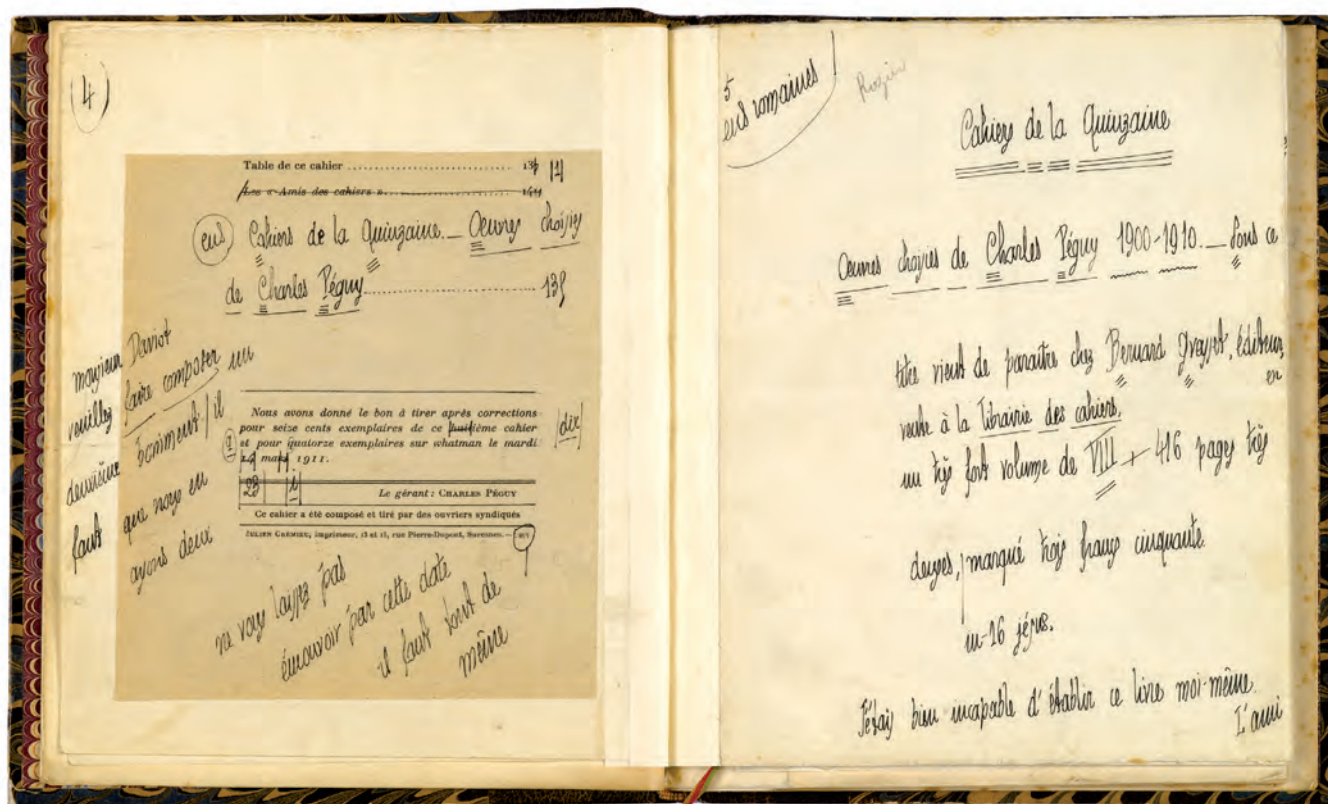 (4)
Table de ce cahier
Les « Amis des cahiers »
Cahiers de la Quinzaine._ Oeuvres choisies
de Charles Péguy 13
monsieur Daviot
veuillez faire composer un
deuxième bonhomme il
faut que nous en
ayons deux
Nous avons donné le bon à tirer après corrections
pour seize cents exemplaires de ce huitième cahier
dix
et pour quatorze exemplaires sur whatman le mardi
mars 1911.
23
Le gérant : CHARLES PÉGUY
Ce cahier a été composé et tiré par des ouvriers syndiqués
JULIEN CRÉMIEU, imprimeur, 13 et 15, rue Pierre-Dupont, Suresnes. —
ne vous laissez pas
émouvoir par cette date
il faut tout de
même
5
romaines
Cahiers de la Quinzaine
Oeuvres choisies de Charles Péguy 1900-1910._ Sous ce
titre vient de paraître chez Bernard Grasset, éditeur,
en
vente à la librairie des cahiers,
un très fort volume de VIII + 416 pages très
denses, marqué trois francs cinquante.
in-16 jésus.
J'étais bien incapable d'établir ce livre moi-même.
L'ami